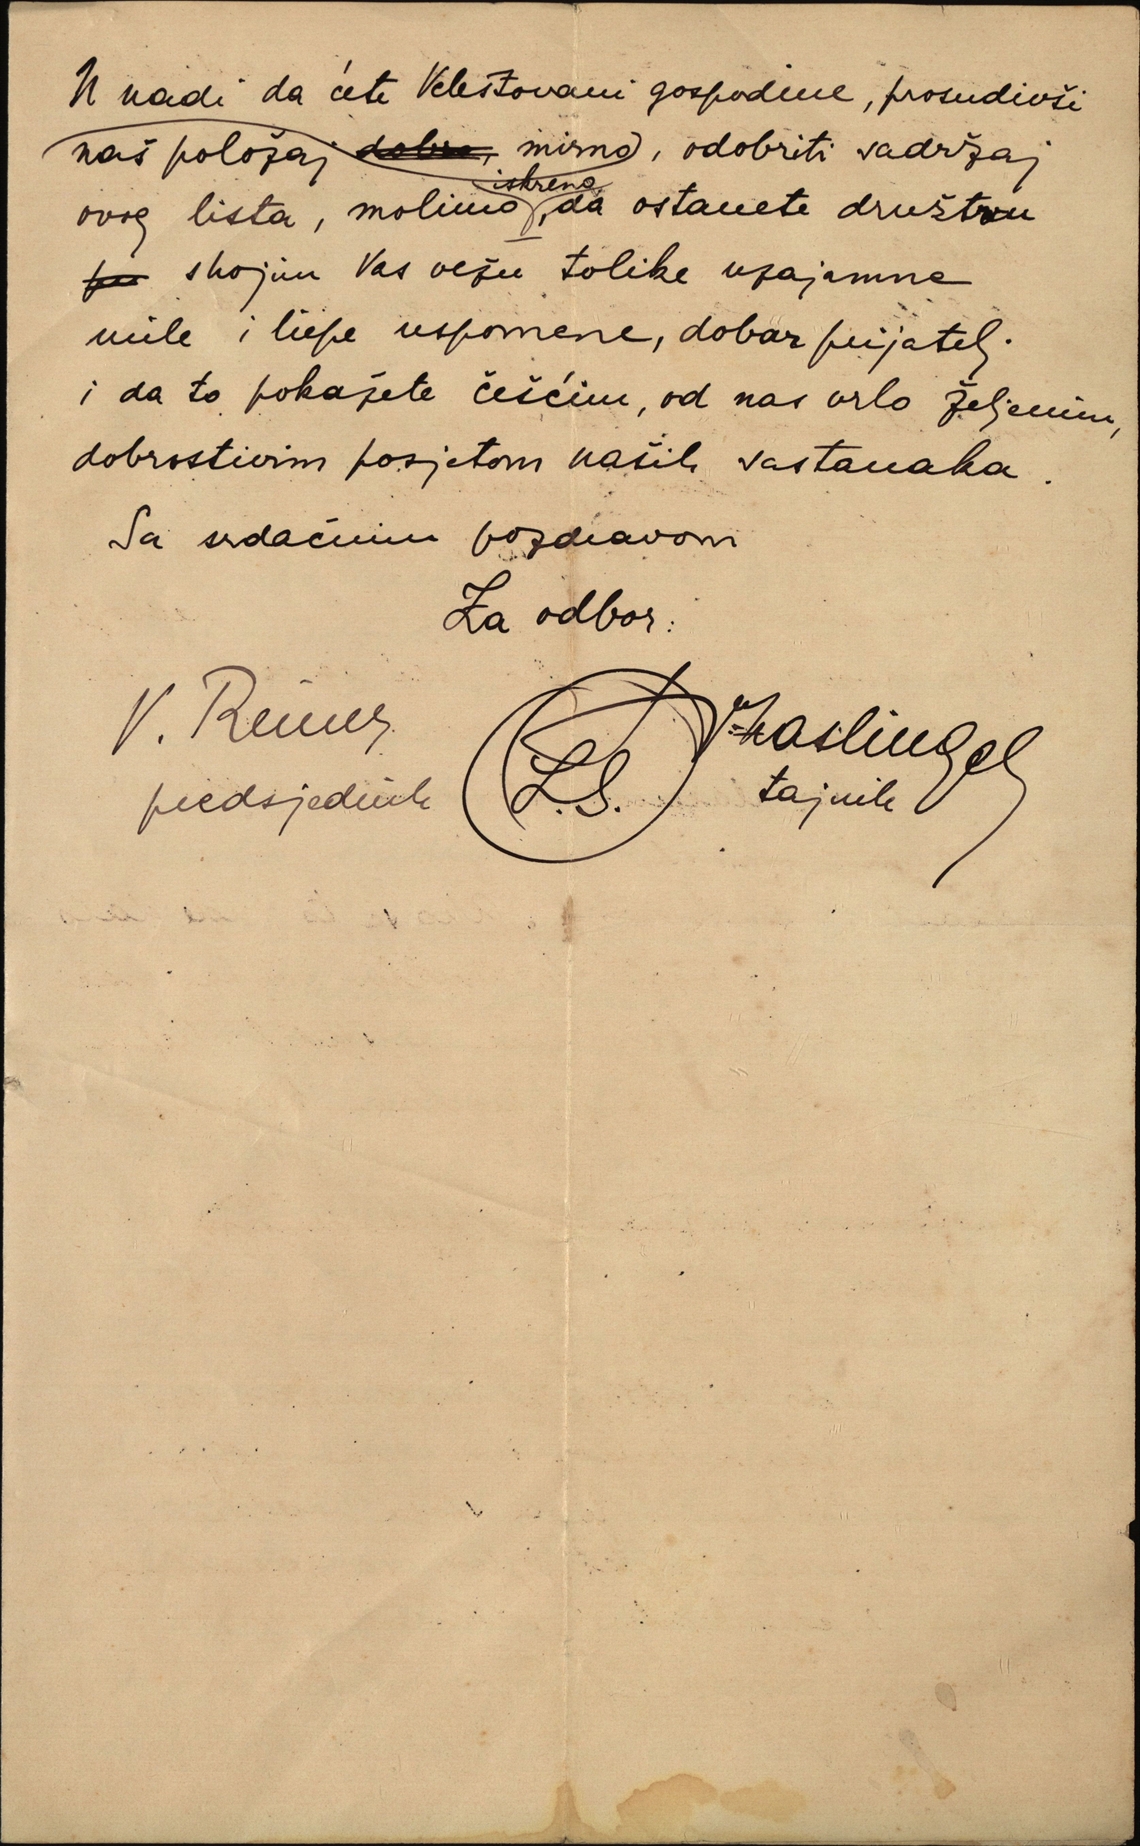 U nadi da ćete Veleštovani gospodine, prosudivši
naš položaj dobro, mirno, odobriti sadržaj
iskreno
ovog lista, molimo, da ostanete društvu
s kojim Vas vežu tolike uzajamne
mile i liepe uspomene, dobar prijatelj.
i da to pokažete češćim, od nas vrlo željenim,
dobrostivim posjetom naših sastanaka.
Sa srdačnim pozdravom
Za odbor:
V. Reiner V. Haslinger
L.S.
predsjednik tajnik